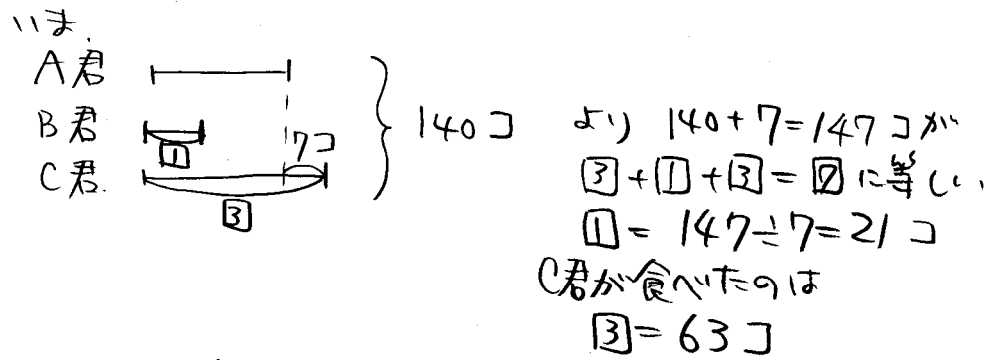 いま、
A君
B君
1
C君.
7コ
3
140コ
より 140+7=147コが
3+1+3=7に等しい、
1=147÷7=21コ
C君が食べたのは
3=63コ